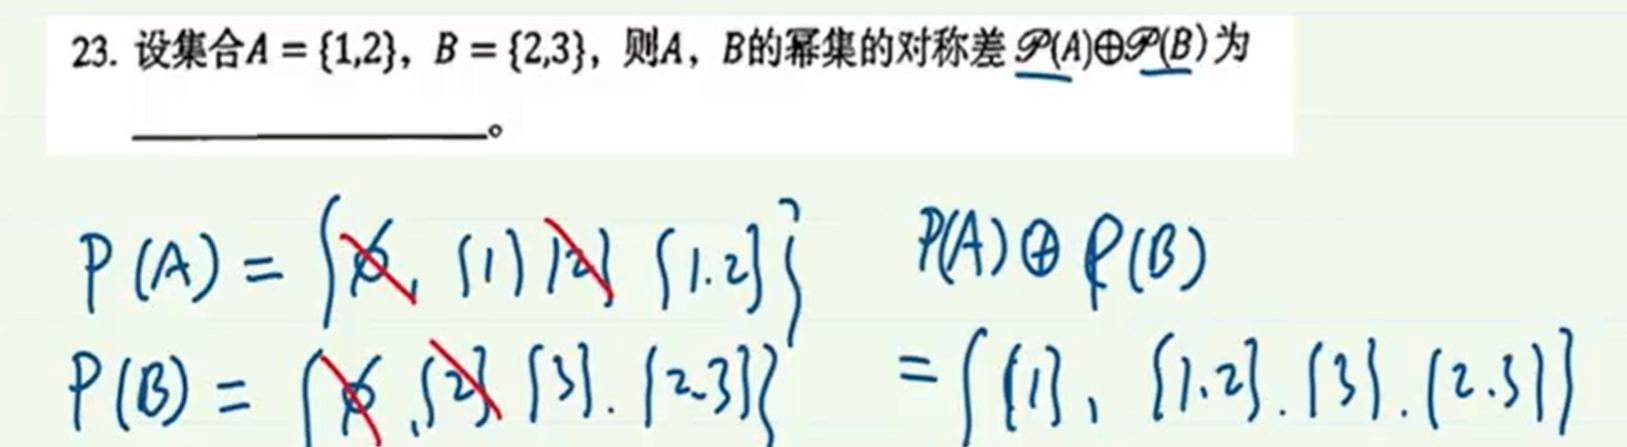 23. 设集合A = {1,2}, B = {2,3}, 则A, B的幂集的对称差 𝒫(A)⊕𝒫(B)为
________________。
P(A) = {∅, {1} {2} {1.2}}
P(A)⊕P(B)
P(B) = {∅, {2} {3}. {2.3}}
= {{1}, {1.2}. {3}. {2.3}}